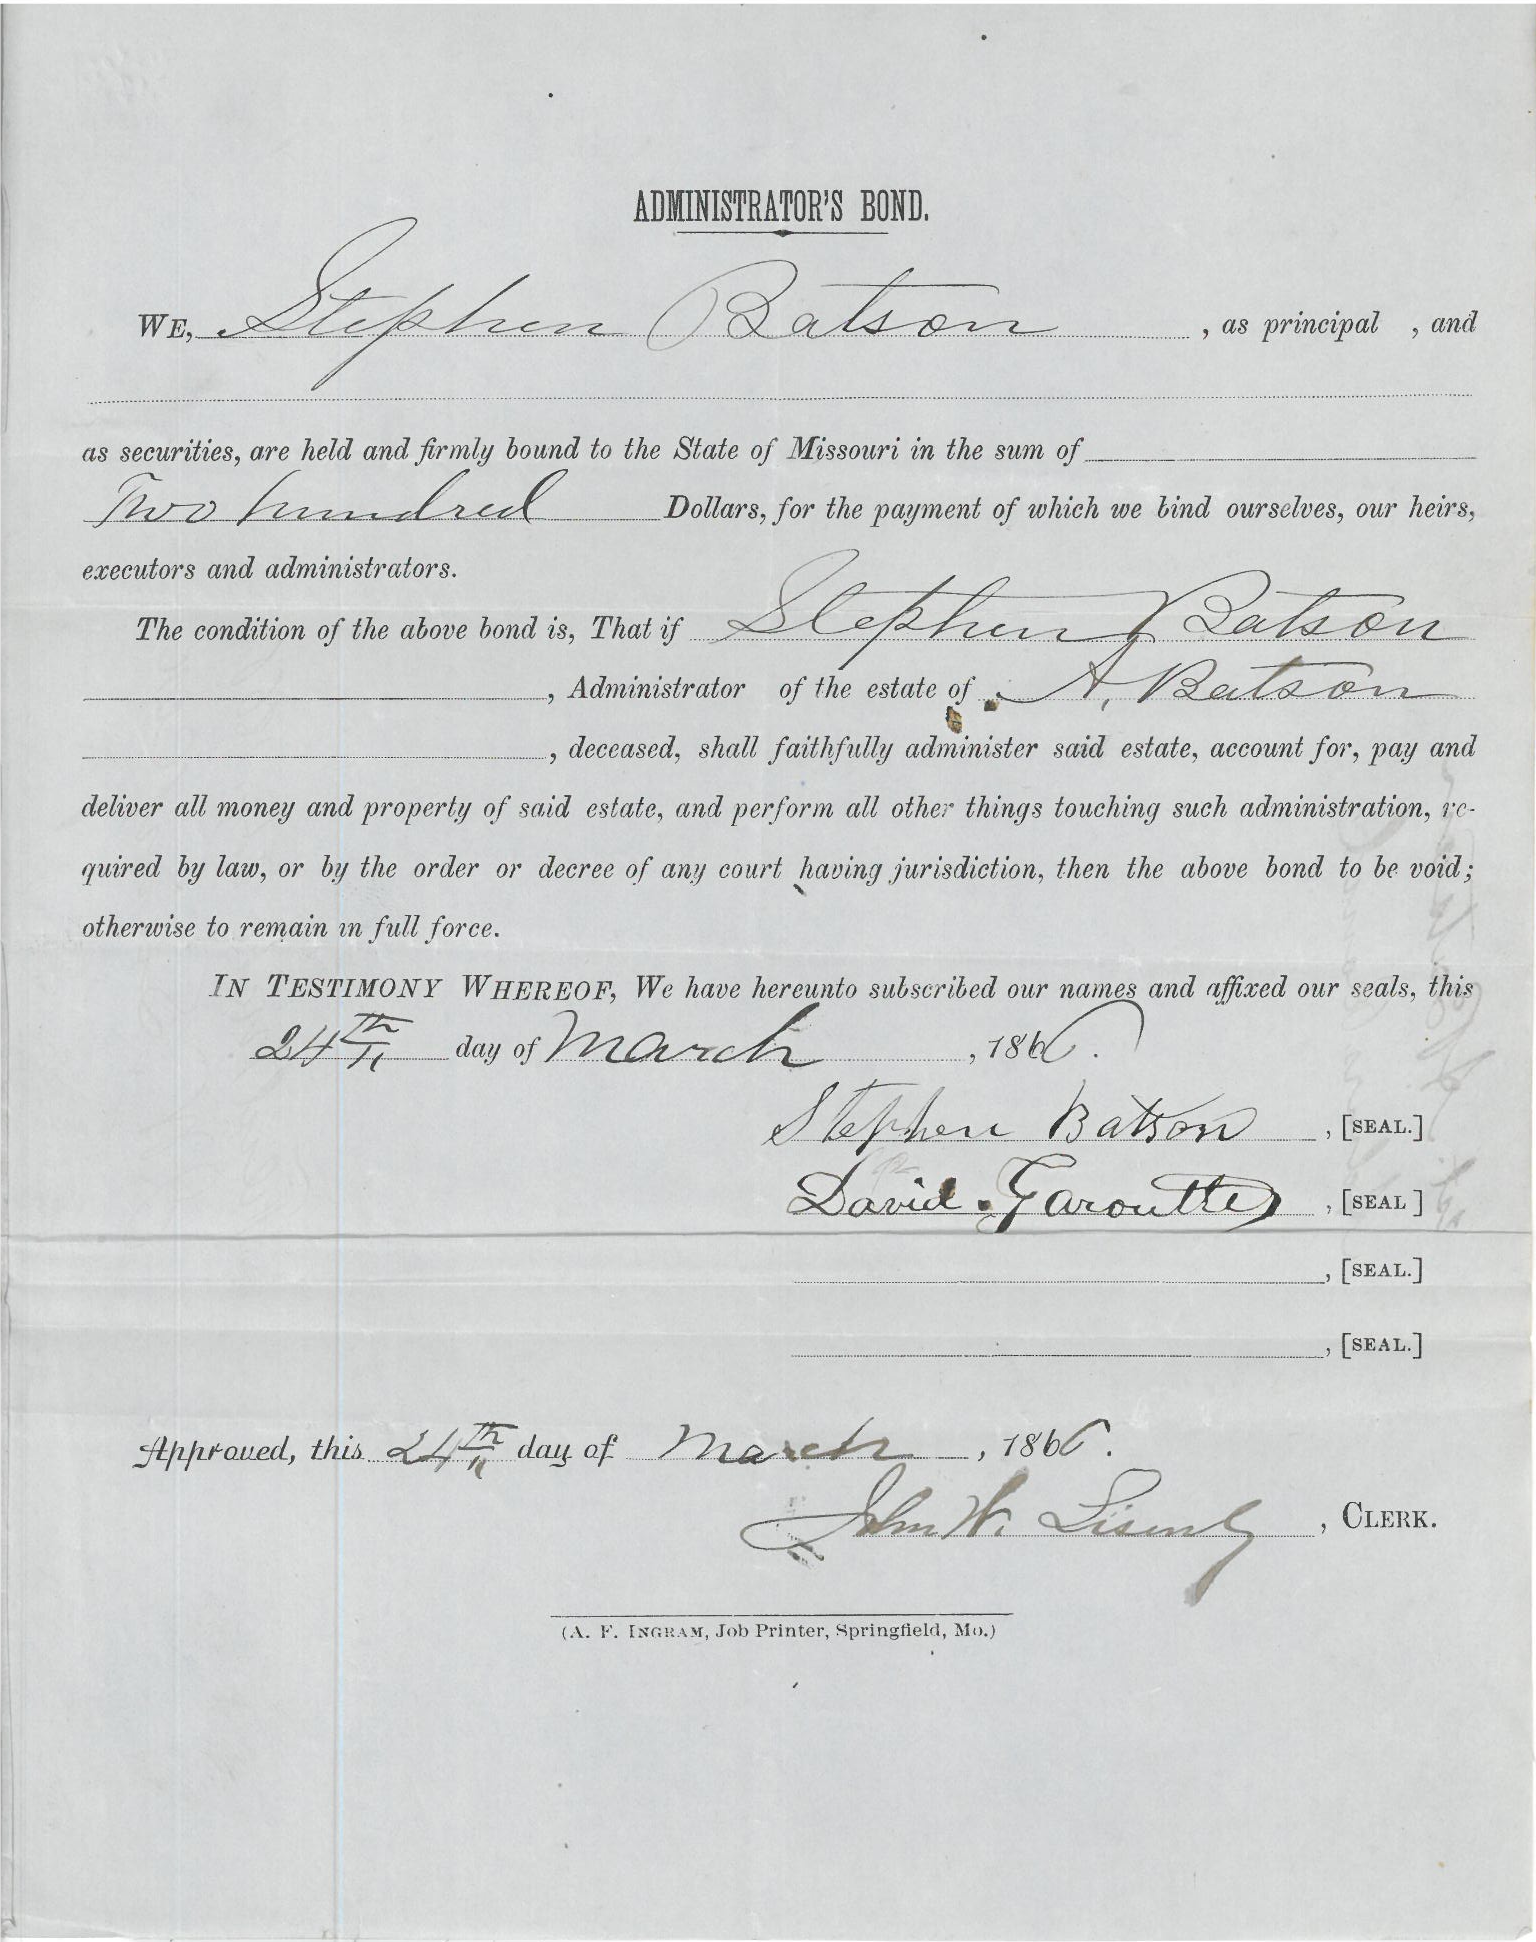 ADMINISTRATOR'S BOND.
WE, Stephen Batson , as principal , and
as securities, are held and firmly bound to the State of Missouri in the sum of
Two hundred Dollars, for the payment of which we bind ourselves, our heirs,
executors and administrators.
The condition of the above bond is, That if Stephen Batson
, Administrator of the estate of A. Batson
, deceased, shall faithfully administer said estate, account for, pay and
deliver all money and property of said estate, and perform all other things touching such administration, re-
quired by law, or by the order or decree of any court having jurisdiction, then the above bond to be void;
otherwise to remain in full force.
IN TESTIMONY WHEREOF, We have hereunto subscribed our names and affixed our seals, this
24th day of March , 1866.
Stephen Batson , [SEAL.]
David Garoutte , [SEAL ]
, [SEAL.]
, [SEAL.]
Approved, this 24th day of March , 1866.
John W. Lisenby , CLERK.
(A. F. INGRAM, Job Printer, Springfield, Mo.)